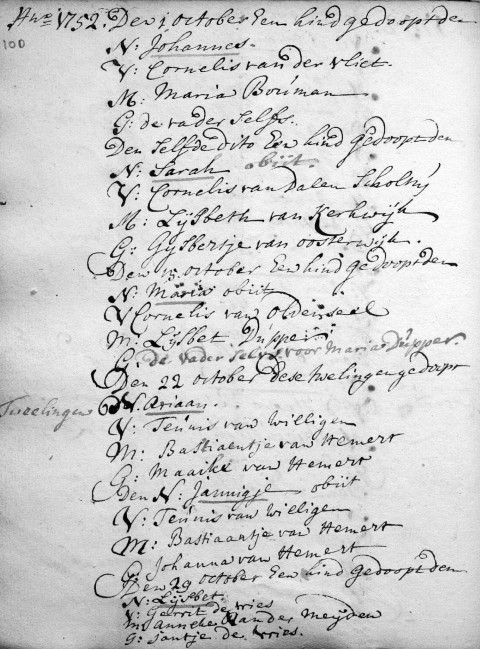 Anno 1752. Den 1 october Een kind gedoopt den
100
N: Johannes.
V: Cornelis van der vliet.
M: Maria Bouman
G: de vader selfs.
Den selfde dito Een kind gedoopt den
N: Sarah obiit
V: Cornelis van Dalen
M: Lijsbeth van Kerkwijk
G: Gijsbertje van oosterwijk.
Den 15 october Een kind gedoopt den
N: Maria obiit
V Cornelis van oldenseel
M: Lijsbet Dupper
G: de vader selvs voor Maria Dupper.
Den 22 october dese twelingen gedoopt
Tweelingen N. Ariaan.
V: Teunis van willigen
M: Bastiaentje van Hemert
G: Maaike van Hemert
Den N: Jannigje obiit
V: Teunis van willigen
M: Bastiaantje van Hemert
G: Johanna van Hemert
Den 29 october Een kind gedoopt den
N: Lijsbet.
V: Gerrit de vries
M: anneke van der Meijden
G: Jantje de vries.